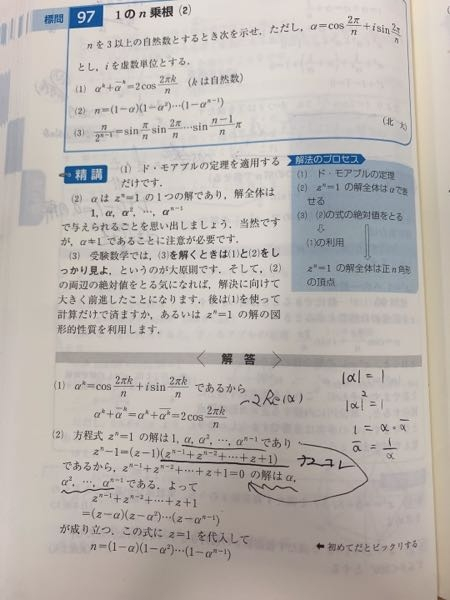 標問 97 1のn乗根(2)
nを3以上の自然数とするとき次を示せ．ただし，α=cos 2π/n + i sin 2π/n
とし，iを虚数単位とする．
(1) α^k+ᾱ^k=2cos 2πk/n (kは自然数)
(2) n=(1-α)(1-α²)…(1-α^(n-1))
(3) n/2^(n-1)=sin π/n sin 2π/n … sin (n-1)/n π
(北 大)
精講 (1) ド・モアブルの定理を適用する
だけです．
(2) αは z^n=1 の1つの解であり，解全体は
1, α, α², …, α^(n-1)
で与えられることを思い出しましょう．当然です
が，α≠1 であることに注意が必要です．
(3) 受験数学では，(3)を解くときは(1)と(2)をし
っかり見よ，というのが大原則です．そして，(2)
の両辺の絶対値をとる気になれば，解決に向けて
大きく前進したことになります．後は(1)を使って
計算だけで済ますか，あるいは z^n=1 の解の図
形的性質を利用します．
解法のプロセス
(1) ド・モアブルの定理
(2) z^n=1 の解全体はαで表
せる
(3) (2)の式の絶対値をとる
⇓
(1)の利用
z^n=1 の解全体は正n角形
の頂点
解答
(1) α^k=cos 2πk/n + i sin 2πk/n であるから
α^k+ᾱ^k=α^k+ᾱ^k=2cos 2πk/n
2Re(α)
|α|=1
|α|²=1
1=α・ᾱ
ᾱ=1/α
(2) 方程式 z^n=1 の解は 1, α, α², …, α^(n-1) であり
z^n-1=(z-1)(z^(n-1)+z^(n-2)+…+z+1)
であるから，z^(n-1)+z^(n-2)+…+z+1=0 の解は α,
α², …, α^(n-1) である．よって
z^(n-1)+z^(n-2)+…+z+1
=(z-α)(z-α²)…(z-α^(n-1))
が成り立つ．この式に z=1 を代入して
n=(1-α)(1-α²)…(1-α^(n-1))
← 初めてだとビックリする